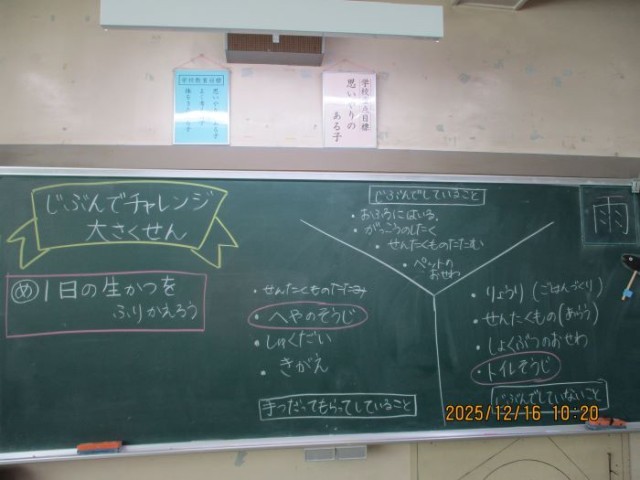 学校重点目標
思いやりの
ある子
じぶんでチャレンジ
大さくせん
め 1日の生かつを
ふりかえろう
じぶんでしていること
・おふろにはいる。
・がっこうのしたく
・せんたくものたたむ
・ペットの
おせわ
雨
・せんたくものたたみ
・へやのそうじ
・しゅくだい
・きがえ
手つだってもらってしていること
・りょうり(ごはんづくり)
・せんたくもの(あらう)
・しょくぶつのおせわ
・トイレそうじ
じぶんでしていないこと
2025/12/16 10:20